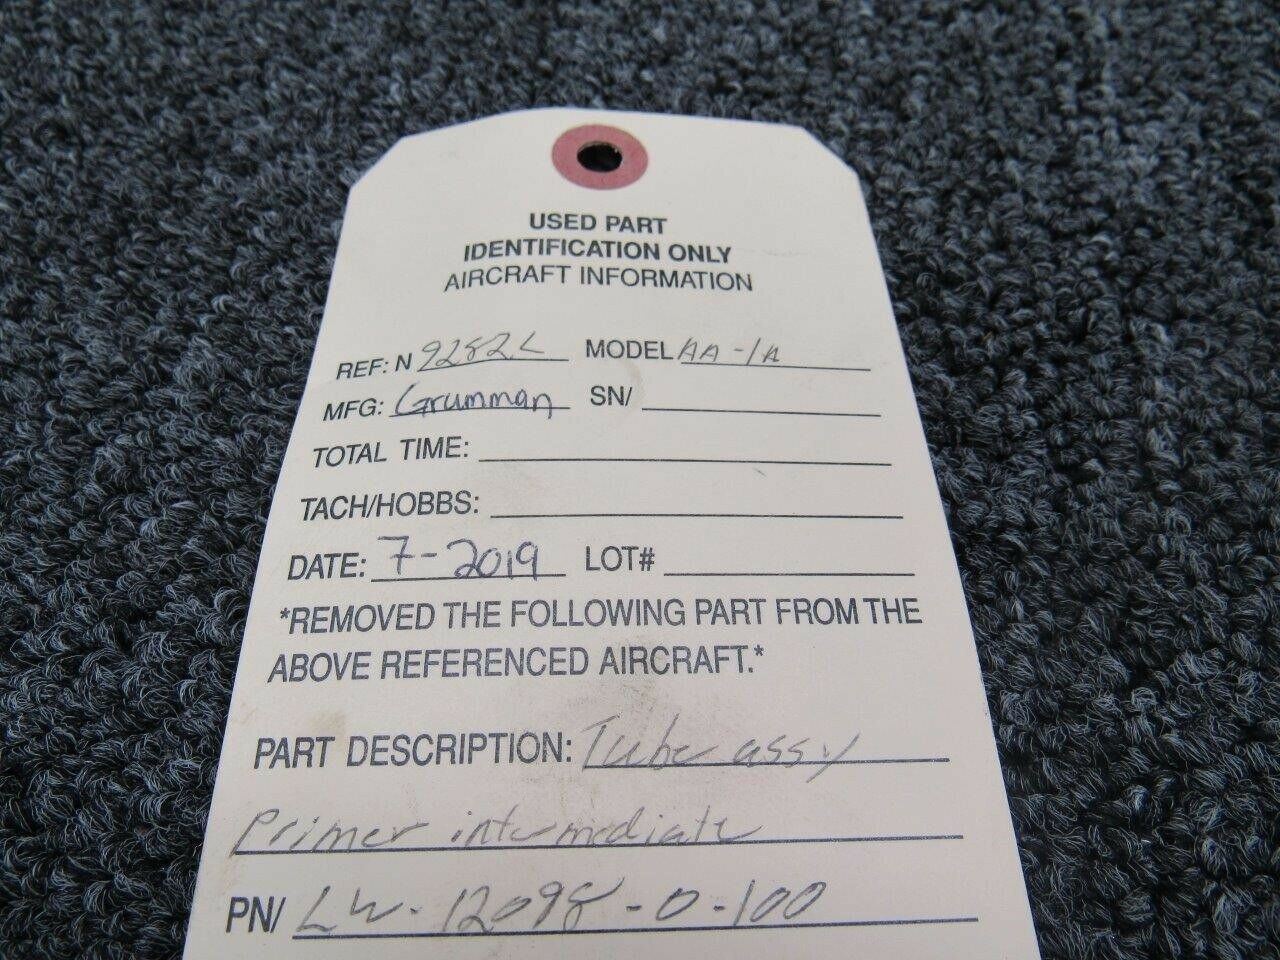 USED PART
IDENTIFICATION ONLY
AIRCRAFT INFORMATION
REF: N 9282L MODEL AA-1A
MFG: Grumman SN/
TOTAL TIME:
TACH/HOBBS:
DATE: 7-2019 LOT#
*REMOVED THE FOLLOWING PART FROM THE
ABOVE REFERENCED AIRCRAFT.*
PART DESCRIPTION: Tube assy
Primer intermediate
PN/ LW-12098-0-100